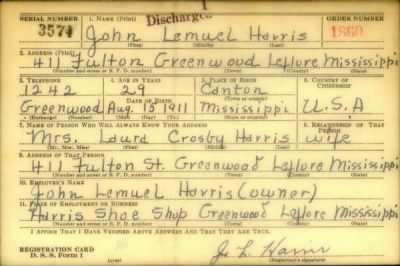 1
SERIAL NUMBER 1. NAME (Print) Discharged ORDER NUMBER
3571 John Lemuel Harris 1860
(First) (Middle) (Last)
2. ADDRESS (Print)
411 Fulton Greenwood Leflore Mississippi
(Number and street or R. F. D. number) (Town) (County) (State)
3. TELEPHONE 4. AGE IN YEARS 5. PLACE OF BIRTH 6. COUNTRY OF CITIZENSHIP
1242 29 Canton
DATE OF BIRTH (Town or county)
Greenwood Aug. 15 1911 Mississippi U.S.A
7. NAME OF PERSON WHO WILL ALWAYS KNOW YOUR ADDRESS 8. RELATIONSHIP OF THAT PERSON
Mrs. Laura Crosby Harris wife
9. ADDRESS OF THAT PERSON
411 Fulton St. Greenwood Leflore Mississippi
(Number and street or R. F. D. number) (Town) (County) (State)
10. EMPLOYER'S NAME
John Lemuel Harris (owner)
11. PLACE OF EMPLOYMENT OR BUSINESS
Harris Shoe Shop Greenwood Leflore Mississippi
(Number and street or R. F. D. number) (Town) (County) (State)
I AFFIRM THAT I HAVE VERIFIED ABOVE ANSWERS AND THAT THEY ARE TRUE.
REGISTRATION CARD
D. S. S. Form 1 J. L. Harris
(over) (Registrant's signature)